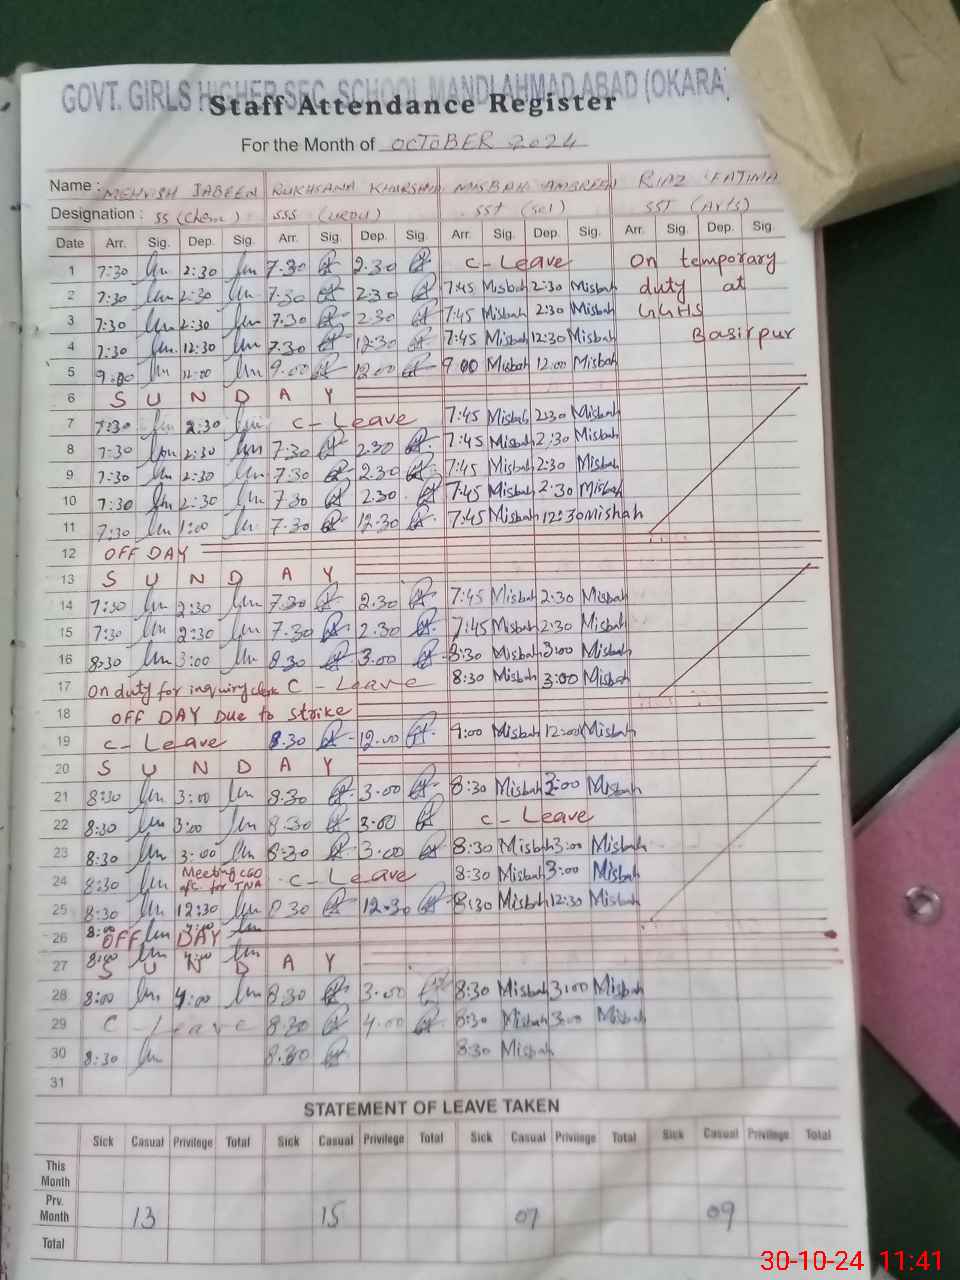 GOVT. GIRLS HIGHER SEC. SCHOOL MANDI AHMAD ABAD (OKARA)
Staff Attendance Register
For the Month of OCTOBER 2024
Name : MEHVISH JABEEN RUKHSANA KHURSHID MISBAH AMBREEN RIAZ FATIMA
Designation : SS (Chem) SSS (URDU) SST (Sci) SST (Arts)
Date Arr. Sig. Dep. Sig. Arr. Sig. Dep. Sig. Arr. Sig. Dep. Sig. Arr. Sig. Dep. Sig.
1 7:30 2:30 7.30 2.30 C-Leave On temporary
2 7:30 2:30 7.30 2.30 7:45 Misbah 2:30 Misbah duty at
3 7:30 2:30 7.30 2.30 7:45 Misbah 2:30 Misbah GGHS
4 7:30 12:30 7.30 12:30 7:45 Misbah 12:30 Misbah Basirpur
5 9:00 12:00 9.00 12.00 9 00 Misbah 12.00 Misbah
6 S U N D A Y
7 7:30 2:30 C-Leave 7:45 Misbah 2:30 Misbah
8 7:30 2:30 7:30 2:30 7:45 Misbah 2:30 Misbah
9 7:30 2:30 7:30 2.30 7:45 Misbah 2:30 Misbah
10 7:30 2:30 7.30 2.30 7:45 Misbah 2:30 Misbah
11 7:30 1:00 7.30 12.30 7:45 Misbah 12:30 Misbah
12 OFF DAY
13 S U N D A Y
14 7:30 2:30 7.30 2.30 7:45 Misbah 2:30 Misbah
15 7:30 2:30 7.30 2.30 7:45 Misbah 2:30 Misbah
16 8:30 3:00 8.30 3.00 8:30 Misbah 3:00 Misbah
17 On duty for inquiry C-Leave 8:30 Misbah 3:00 Misbah
18 OFF DAY Due to strike
19 C-Leave 8.30 12.00 9:00 Misbah 12:00 Misbah
20 S U N D A Y
21 8:30 3:00 8.30 3.00 8:30 Misbah 3:00 Misbah
22 8:30 3:00 8.30 3.00 C-Leave
23 8:30 3:00 8:30 3.00 8:30 Misbah 3:00 Misbah
24 8:30 Meeting CEO C-Leave 8:30 Misbah 3:00 Misbah
for TNA
25 8:30 12:30 8.30 12.30 8:30 Misbah 12:30 Misbah
26 8:00 OFF DAY
27 8:00 S U N D A Y
28 8:00 4:00 8.30 3.00 8:30 Misbah 3:00 Misbah
29 C-Leave 8.30 4.00 8:30 Misbah 3:00 Misbah
30 8:30 8.30 8:30 Misbah
31
STATEMENT OF LEAVE TAKEN
Sick Casual Privilege Total Sick Casual Privilege Total Sick Casual Privilege Total Sick Casual Privilege Total
This Month
Prv. Month 13 15 07 09
Total
30-10-24 11:41